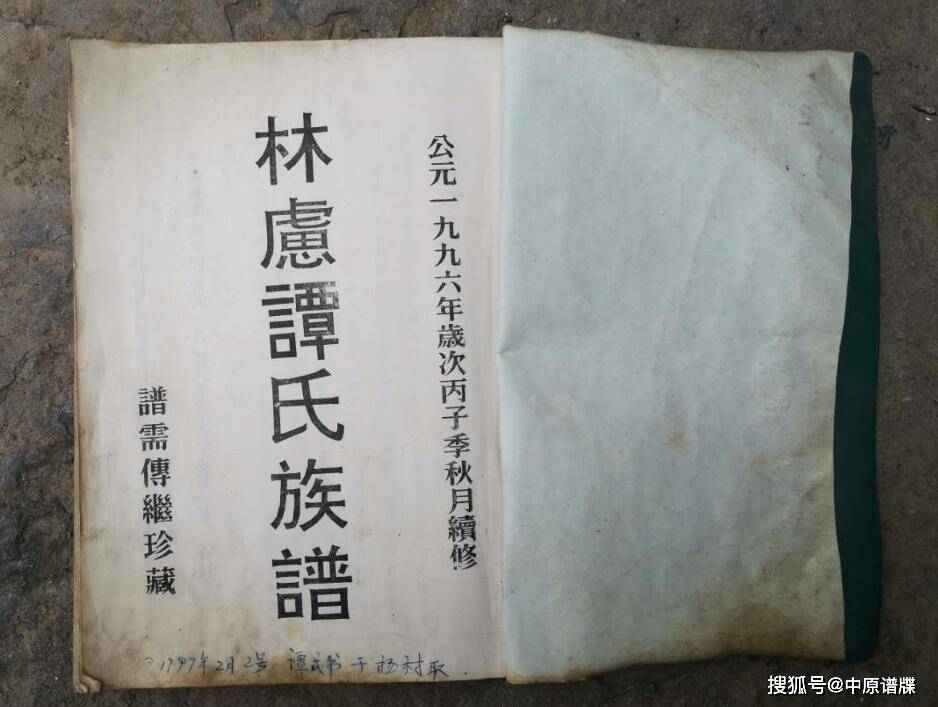 公元一九九六年歲次丙子季秋月續修
林慮譚氏族譜
譜需傳繼珍藏
1997年2月2号 谭成书于杨村取
搜狐号@中原谱牒